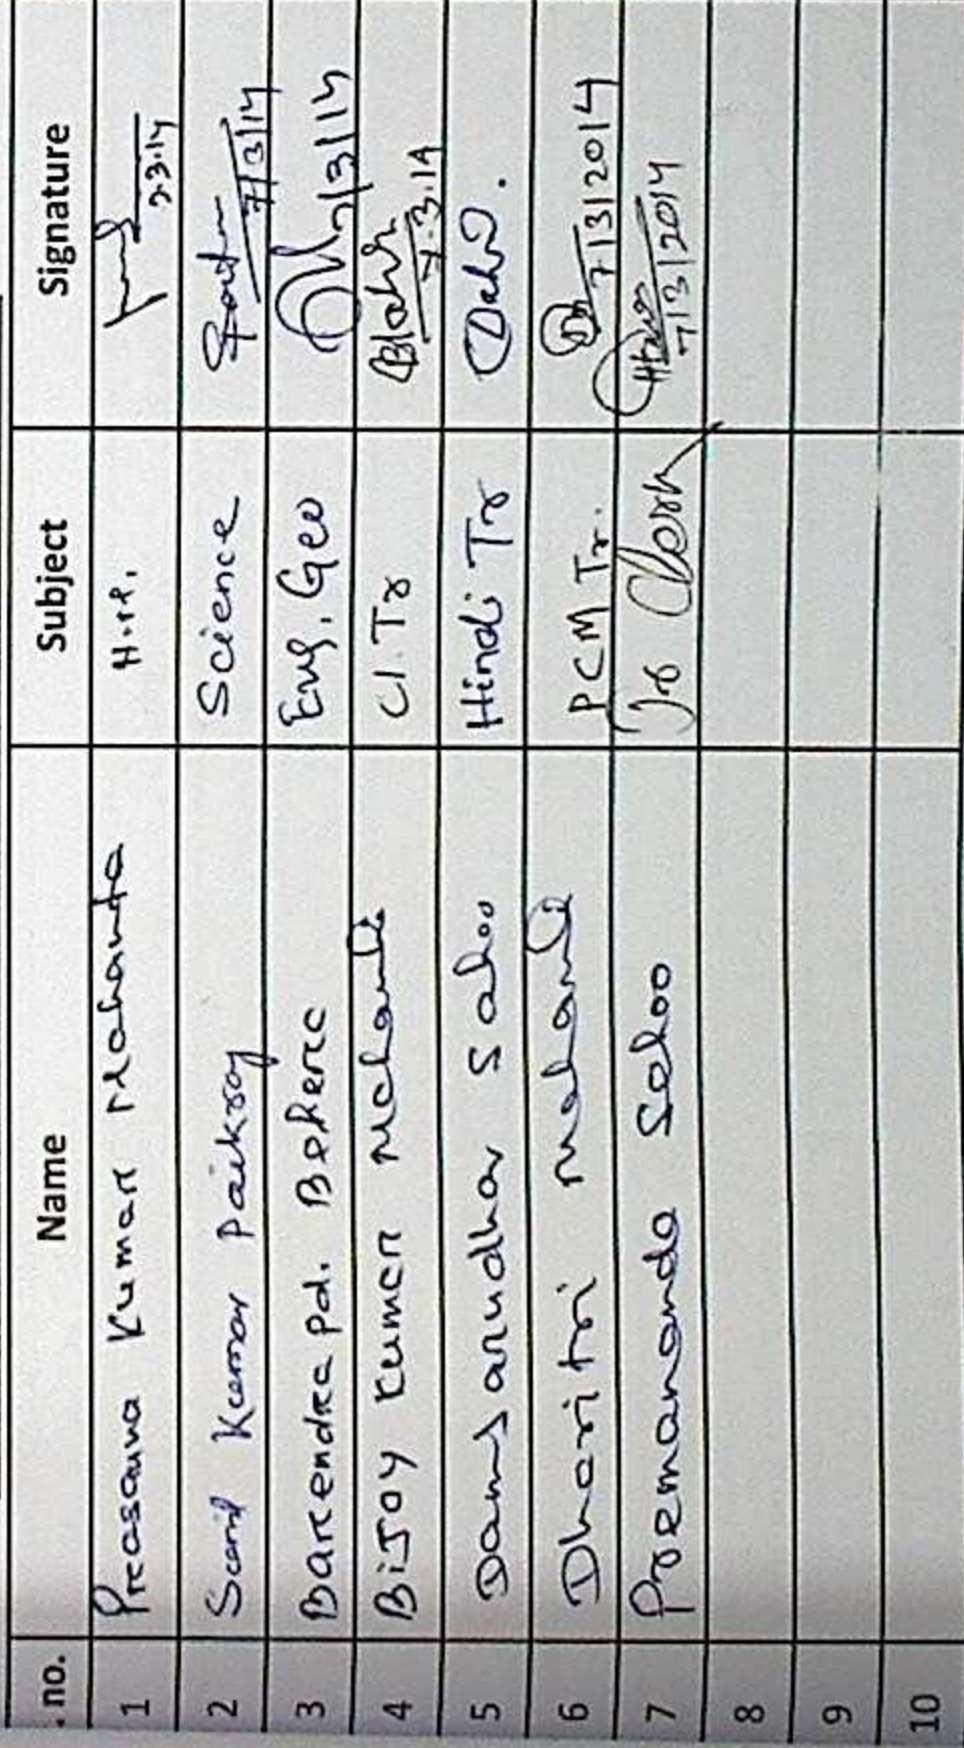 . no. Name Subject Signature
1 Prasanna Kumar Mahanta H.M. 7.3.14
2 Kumar Paikray Science 7/3/14
3 Barendra pd. Behera Eng, Geo 7/3/14
4 Bijoy Kumar Mahanta Cl. Tr 7.3.14
5 Sahoo Hindi Tr Sahoo.
6 Dharitri Mahanta PCM Tr. 7/3/2014
7 Premananda Sahoo Jr Clerk 7/3/2014
8
9
10